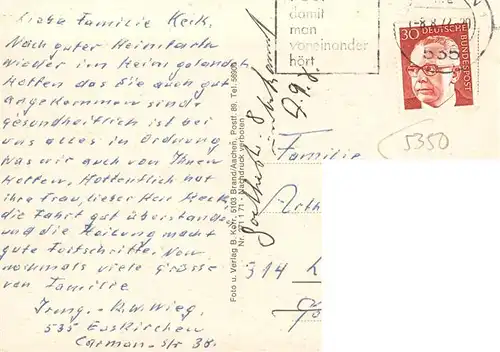 Liebe Familie Keck,
Nach guter Heimfahrt
wieder im Heim gelandet
Hoffen das Sie auch gut
angekommen sind.
gesundheitlich ist bei
uns alles in Ordnung
was wir auch von Ihnen
Hoffen, Hoffentlich hat
ihre Frau, lieber Herr Keck
die Fahrt gut überstanden
und die Heilung macht
gute Fortschritte. Nun
nochmals viele Grüsse
von Familie
Irmg. - B.W. Wieg.
535 Euskirchen
Carman-Str 38.
Foto u. Verlag B. Kerr, 5103 Brand/Aachen, Postf. 89, Tel. 56003
Nr. 271 1 71 - Nachdruck verboten
Goethestr. 8
unbekannt
damit
man
voneinander
hört
-8.8.72-20
535
30 DEUTSCHE BUNDESPOST
5350
Familie
Arth
314